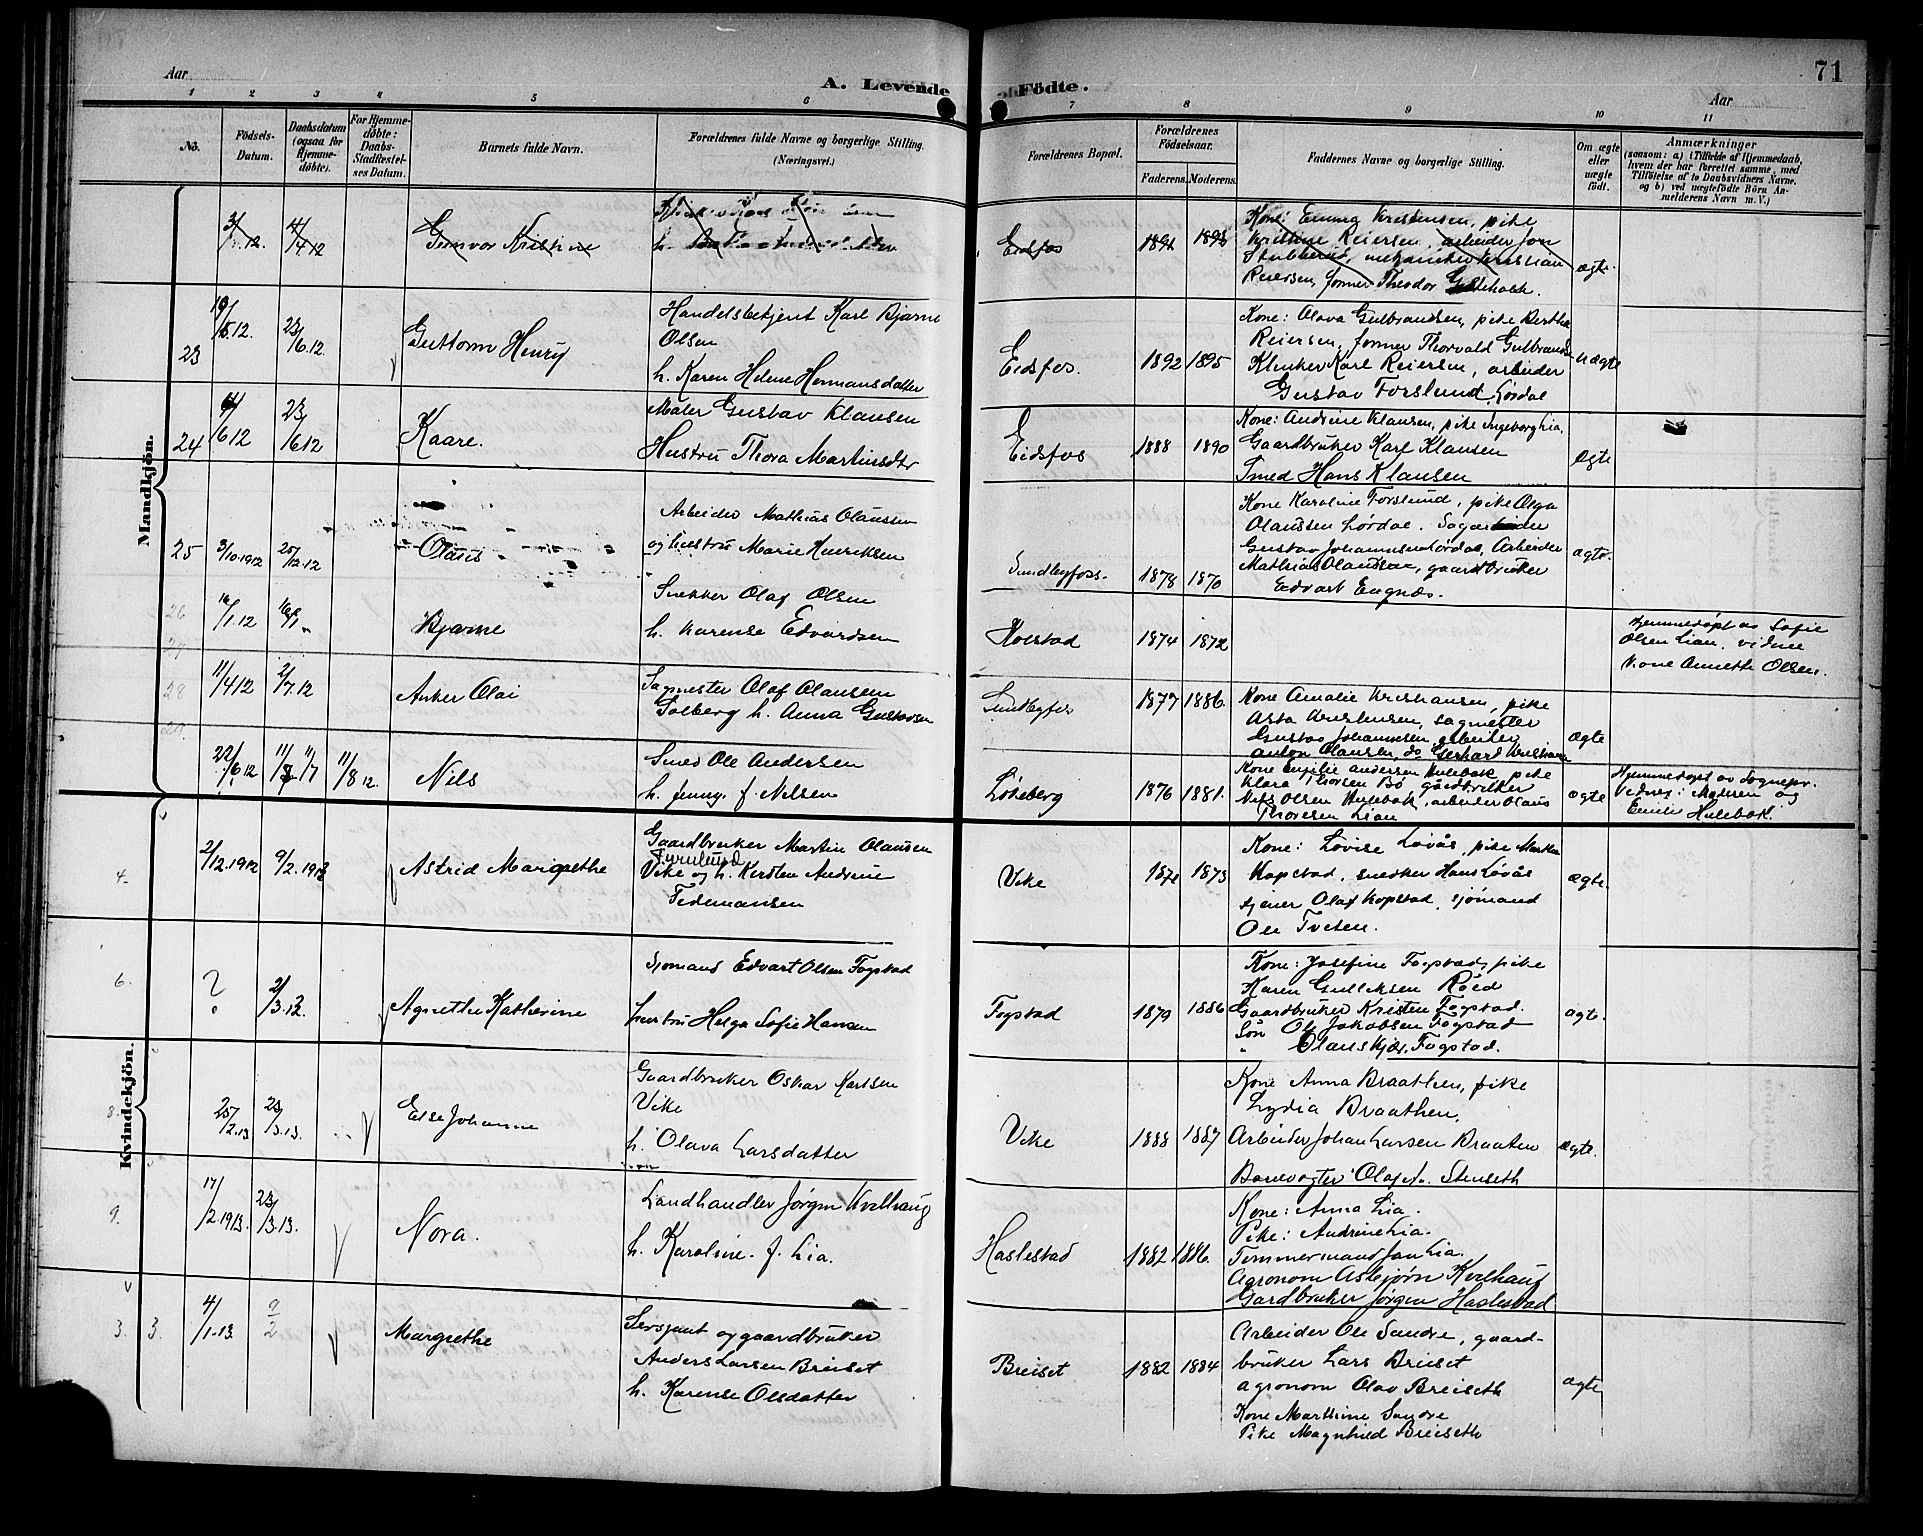 Aar
A. Levende Födte.
71
Aar
1 2 3 4 5 6 7 8 9 10 11
No.
Födsels-
Datum.
Daabsdatum
(ogsaa for
Hjemme-
döbte).
For Hjemme-
döbte:
Daabs-
Stadfæstel-
ses Datum.
Barnets fulde Navn.
Forældrenes fulde Navne og borgerlige Stilling.
(Næringsvei.)
Forældrenes Bopæl.
Forældrenes
Födselsaar.
Faderens. Moderens.
Faddernes Navne og borgerlige Stilling.
Om ægte
eller
uægte
födt.
Anmærkninger
(saasom: a) i Tilfælde af Hjemmedaab,
hvem der har forrettet samme, med
Tilföielse af to Daabsvidners Navne,
og b) ved uægtefödte Börn An-
melderens Navn m. V.)
Mandkjön.
Gunvor Kristine
h.
Eidsfos
Kone: Emma Kristensen, pike
Kristine Reiersen, arbeider Jon
Stubberud, Kristian
Reiersen, former Theodor
ægte
23
Guttorm Henry
Handelsbetjent Karl Bjarne
Olsen
h. Karen Helene Hermansdatter
Eidsfos.
1892 1895
Kone: Olava Gulbrandsen, pike Bertha
Reiersen, former Thorvald
Klinker Karl Reiersen, arbeider
Gustav Forslund, Lördal
uægte
24
6 12
23/6 12
Kaare.
Maler Gustav Klausen
Hustru Thora Martinsdtr
Eidsfos
1888 1890
Kone: Andrine Klausen, pike Ingeborg Lia.
Gaardbruker Karl Klausen
Smed Hans Klausen
ægte
25
3/10.1912
25/12.12
Olaus
Arbeider Mathias Olaussen
og hustru Marie Henriksen
Sundbyfoss.
1878 1870
Kone Karoline Forslund, pike Olga
Olaussen Lördal. Sagarbeider
Gustav Johannesen Lördal, Arbeider
Mathias Olaussen, gaardbruker
Edvart Engnæs.
ægte.
26
/1.12
Bjarne
Snekker Olaf Olsen
h. Karense Edvardsen
Holstad
1874 1872
Hjemmedöpt av Sofie
Olsen Lian, vidne
Kone Annette Olsen.
28
11/4 12
2/7.12
Anker Olai
Sagmester Olaf Olaussen
Solberg h. Anna Gustavsen
Sundbyfos
1877 1886
Kone Amalie Kristiansen, pike
Asta Kristensen, sagmester
Gustav Johannesen, arbeider
Anton Olaussen, do Gerhard Kristiansen
ægte
29.
22/6 12
11/8 12.
Nils
Smed Ole Andersen
h. Jenny f. Nilsen
Lökeberg
1876 1881.
Kone Emilie Andersen Hulebak, pike
Klara Thorsen Bö, gaardbruker
Nils Olsen Hulebak, arbeider Olaus
Thoresen Lian
ægte
Hjemmedöpt av Sognepr.
Vidner: Moderen og
Emilie Hulebak.
Kvindekjön.
4.
2/12.1912
9/2.1913
Astrid Margrethe
Gaardbruker Martin Olaussen
Vike og h. Kirsten Andrine
Tidemansen
Vike
1873
Kone: Lovise Lövås, pike
Kopstad, snedker Hans Lövås
tjener Olaf Kopstad, sjömand
Ole Tveten.
ægte.
6.
?
2/3.13.
Agnethe Katherine
Sjömand Edvart Olsen Fogstad
hustru Helga Sofie Hansen
Fogstad
1879 1886
Kone: Josefine Fogstad, pike
Karen Gulliksen Röed
Gaardbruker Kristen Fogstad.
Sön Ole Jakobsen Fogstad
" Fogstad.
ægte.
8
25/2.13
23/3.13.
Else Johanne
Gaardbruker Oskar Karlsen
Vike
h. Olava Larsdatter
Vike
1888 1887
Kone Anna Braathen, pike
Lydia Braathen,
Arbeider Johan Larsen Braaten
Banevogter Olaf Stenseth
ægte.
9.
17/2.1913.
23/3.13.
Nora.
Landhandler Jörgen Kvilhaug
h. Karoline f. Lia.
Haslestad
1882 1886.
Kone: Anna Lia.
Pike: Andrine Lia.
Tömmermand Jan Lia.
Agronom Asbjörn Kvilhaug
Gardbruker Jörgen Haslestad
3. 3.
4/1.13.
9/2
Margrethe
Sersjant og gaardbruker
Anders Larsen Breiset
h. Karense Olsdatter
Breiset
1882 1884
Arbeider Ole Sandre, gaard-
bruker Lars Breiset
agronom Olav Breiseth
Kone Marthine Sandre
Pike Magnhild Breiseth
ægte